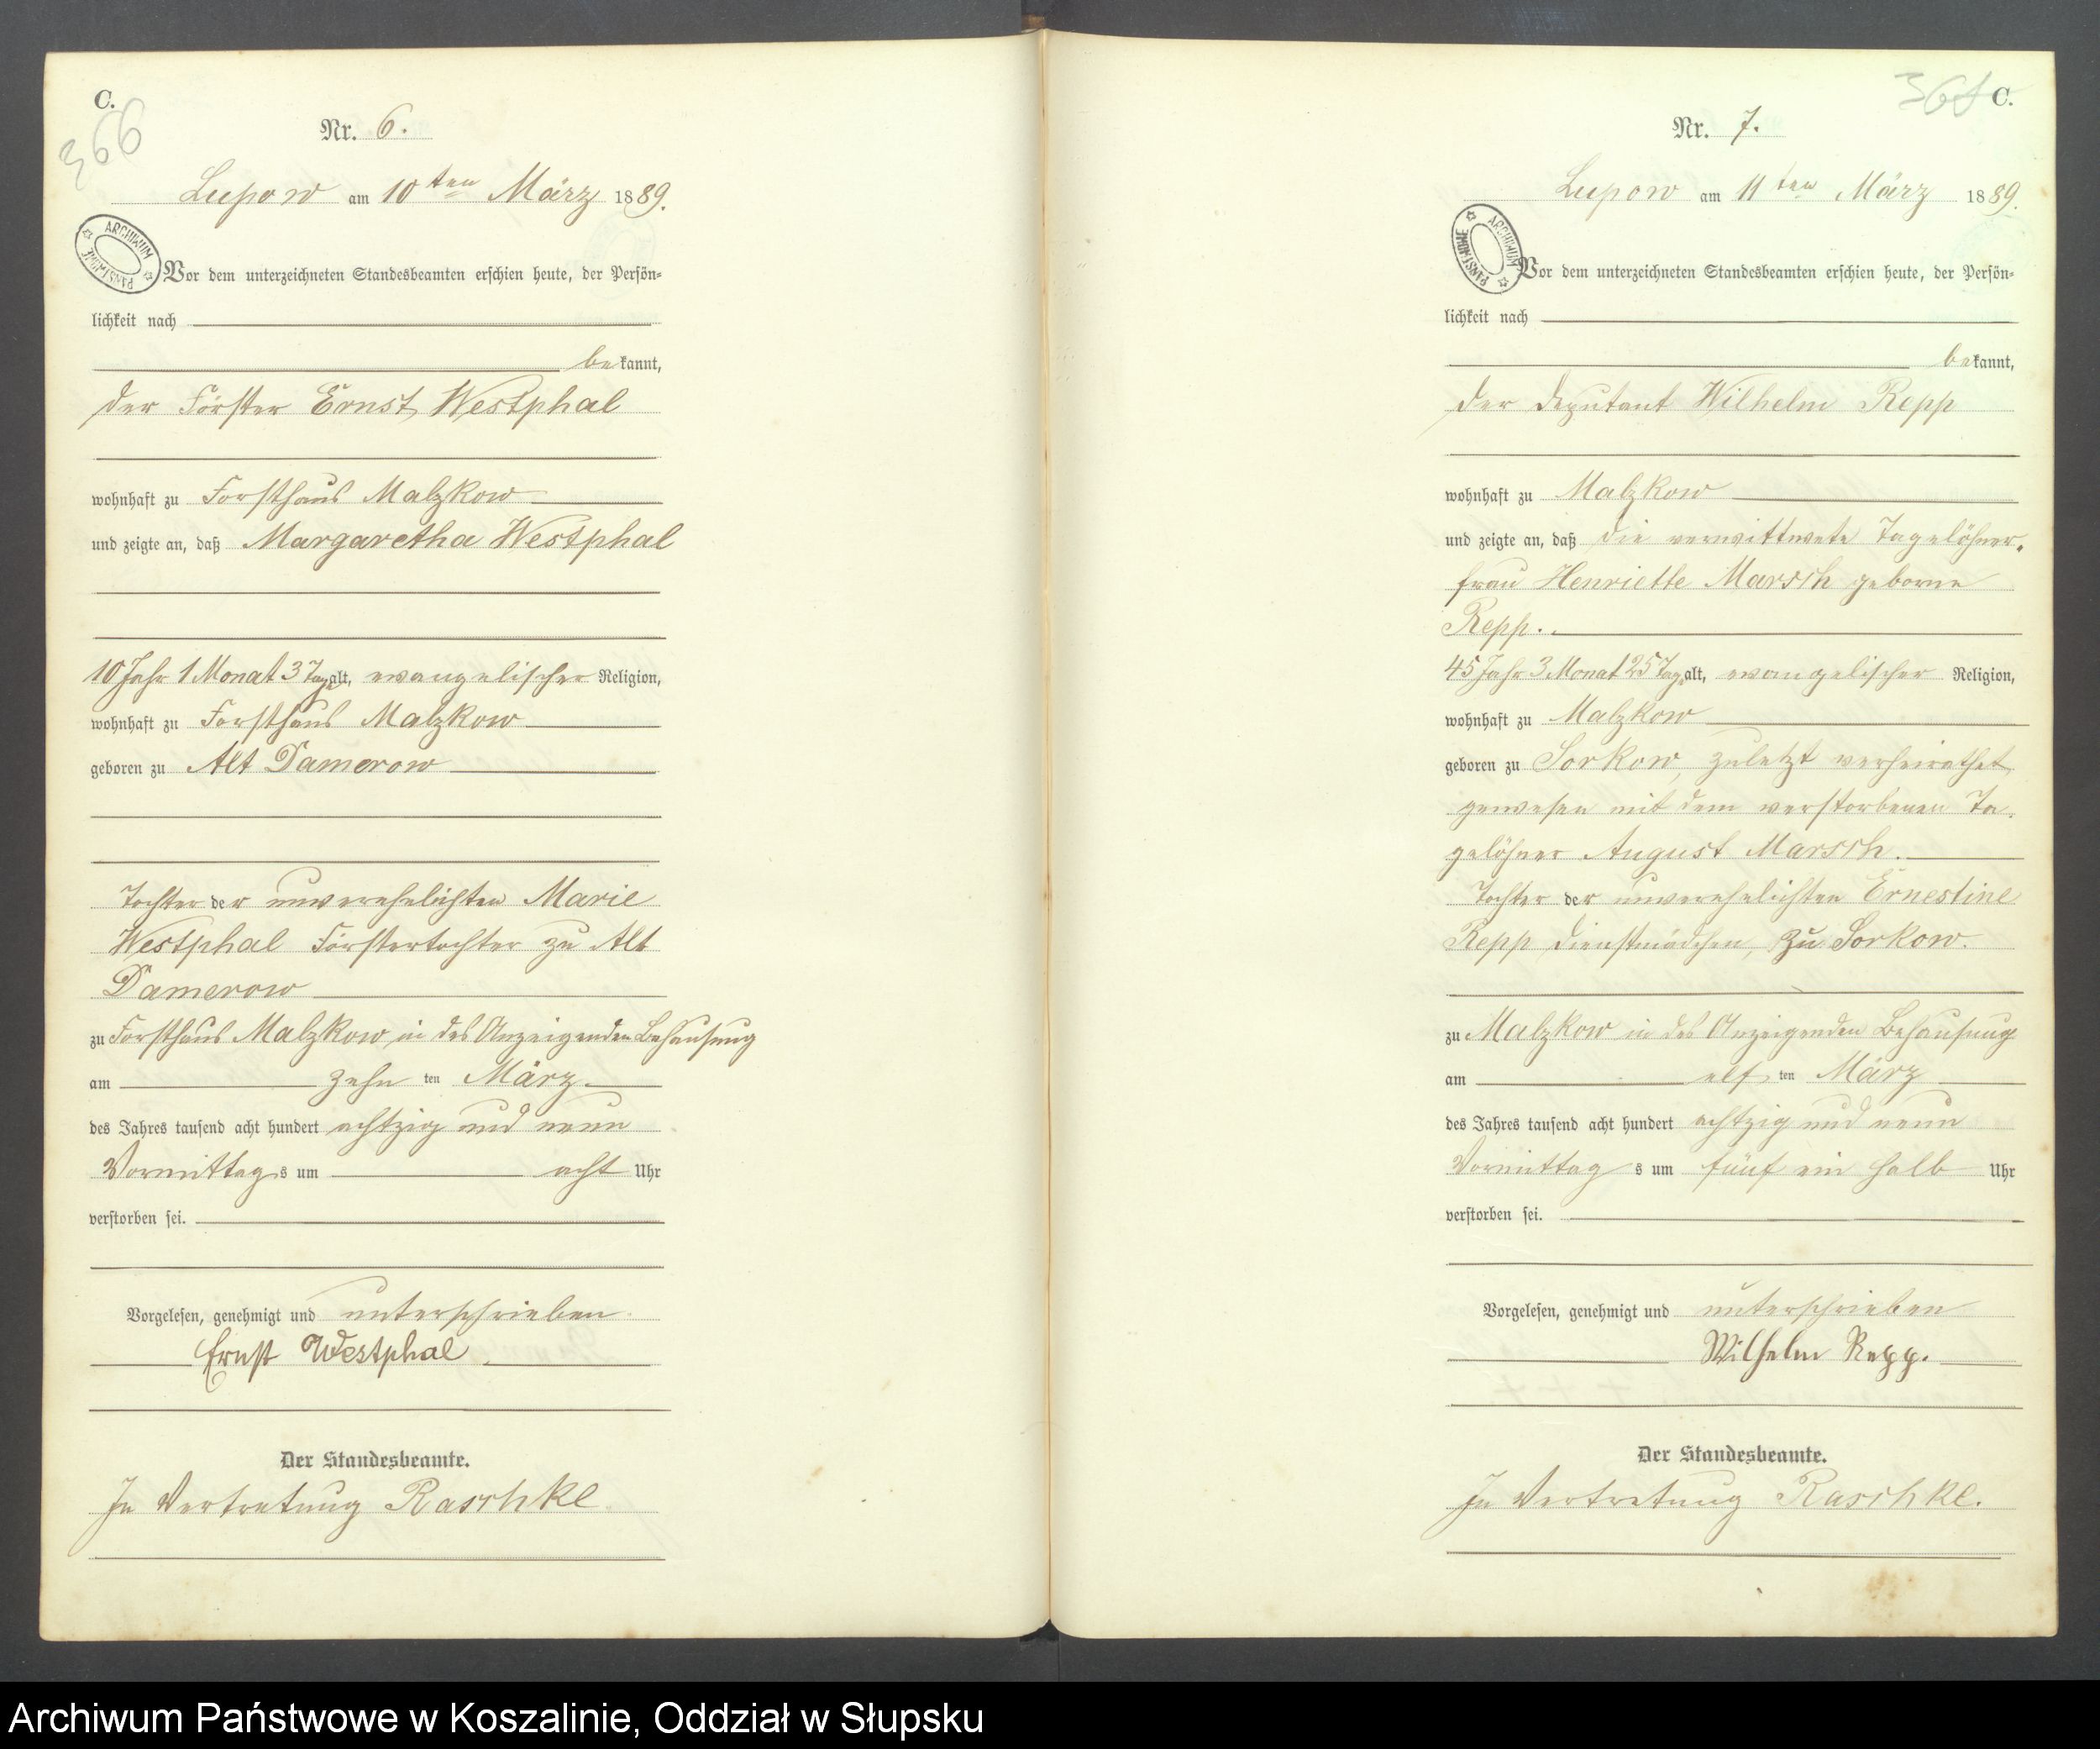 C.
366
Nr. 6.
Lupow am 10ten März 1889.
ARCHIWUM PAŃSTWOWE
Vor dem unterzeichneten Standesbeamten erschien heute, der Persön=
lichkeit nach
bekannt,
der Förster Ernst Westphal
wohnhaft zu Forsthaus Malzkow
und zeigte an, daß Margaretha Westphal
10 Jahr 1 Monat 3 Tage alt, evangelischer Religion,
wohnhaft zu Forsthaus Malzkow
geboren zu Alt Damerow
Tochter der unverehelichten Marie
Westphal Förstertochter zu Alt
Damerow
zu Forsthaus Malzkow in des Anzeigenden Behausung
am zehn ten März
des Jahres tausend acht hundert achtzig und neun
Vormittags um acht Uhr
verstorben sei.
Vorgelesen, genehmigt und unterschrieben
Ernst Westphal
Der Standesbeamte.
In Vertretung Raschke
C.
Nr. 7.
Lupow am 11ten März 1889.
ARCHIWUM PAŃSTWOWE
Vor dem unterzeichneten Standesbeamten erschien heute, der Persön=
lichkeit nach
bekannt,
der Deputant Wilhelm Repp
wohnhaft zu Malzkow
und zeigte an, daß die verwittwete Tagelöhner-
frau Henriette Marsch geborne
Repp.
45 Jahr 3 Monat 25 Tage alt, evangelischer Religion,
wohnhaft zu Malzkow
geboren zu Sorkow, zuletzt verheirathet
gewesen mit dem verstorbenen Ta-
gelöhner August Marsch.
Tochter der unverehelichten Ernestine
Repp Dienstmädchen, zu Sorkow.
zu Malzkow in des Anzeigenden Behausung
am elf ten März
des Jahres tausend acht hundert achtzig und neun
Vormittags um fünf ein halb Uhr
verstorben sei.
Vorgelesen, genehmigt und unterschrieben
Wilhelm Repp.
Der Standesbeamte.
In Vertretung Raschke.
Archiwum Państwowe w Koszalinie, Oddział w Słupsku